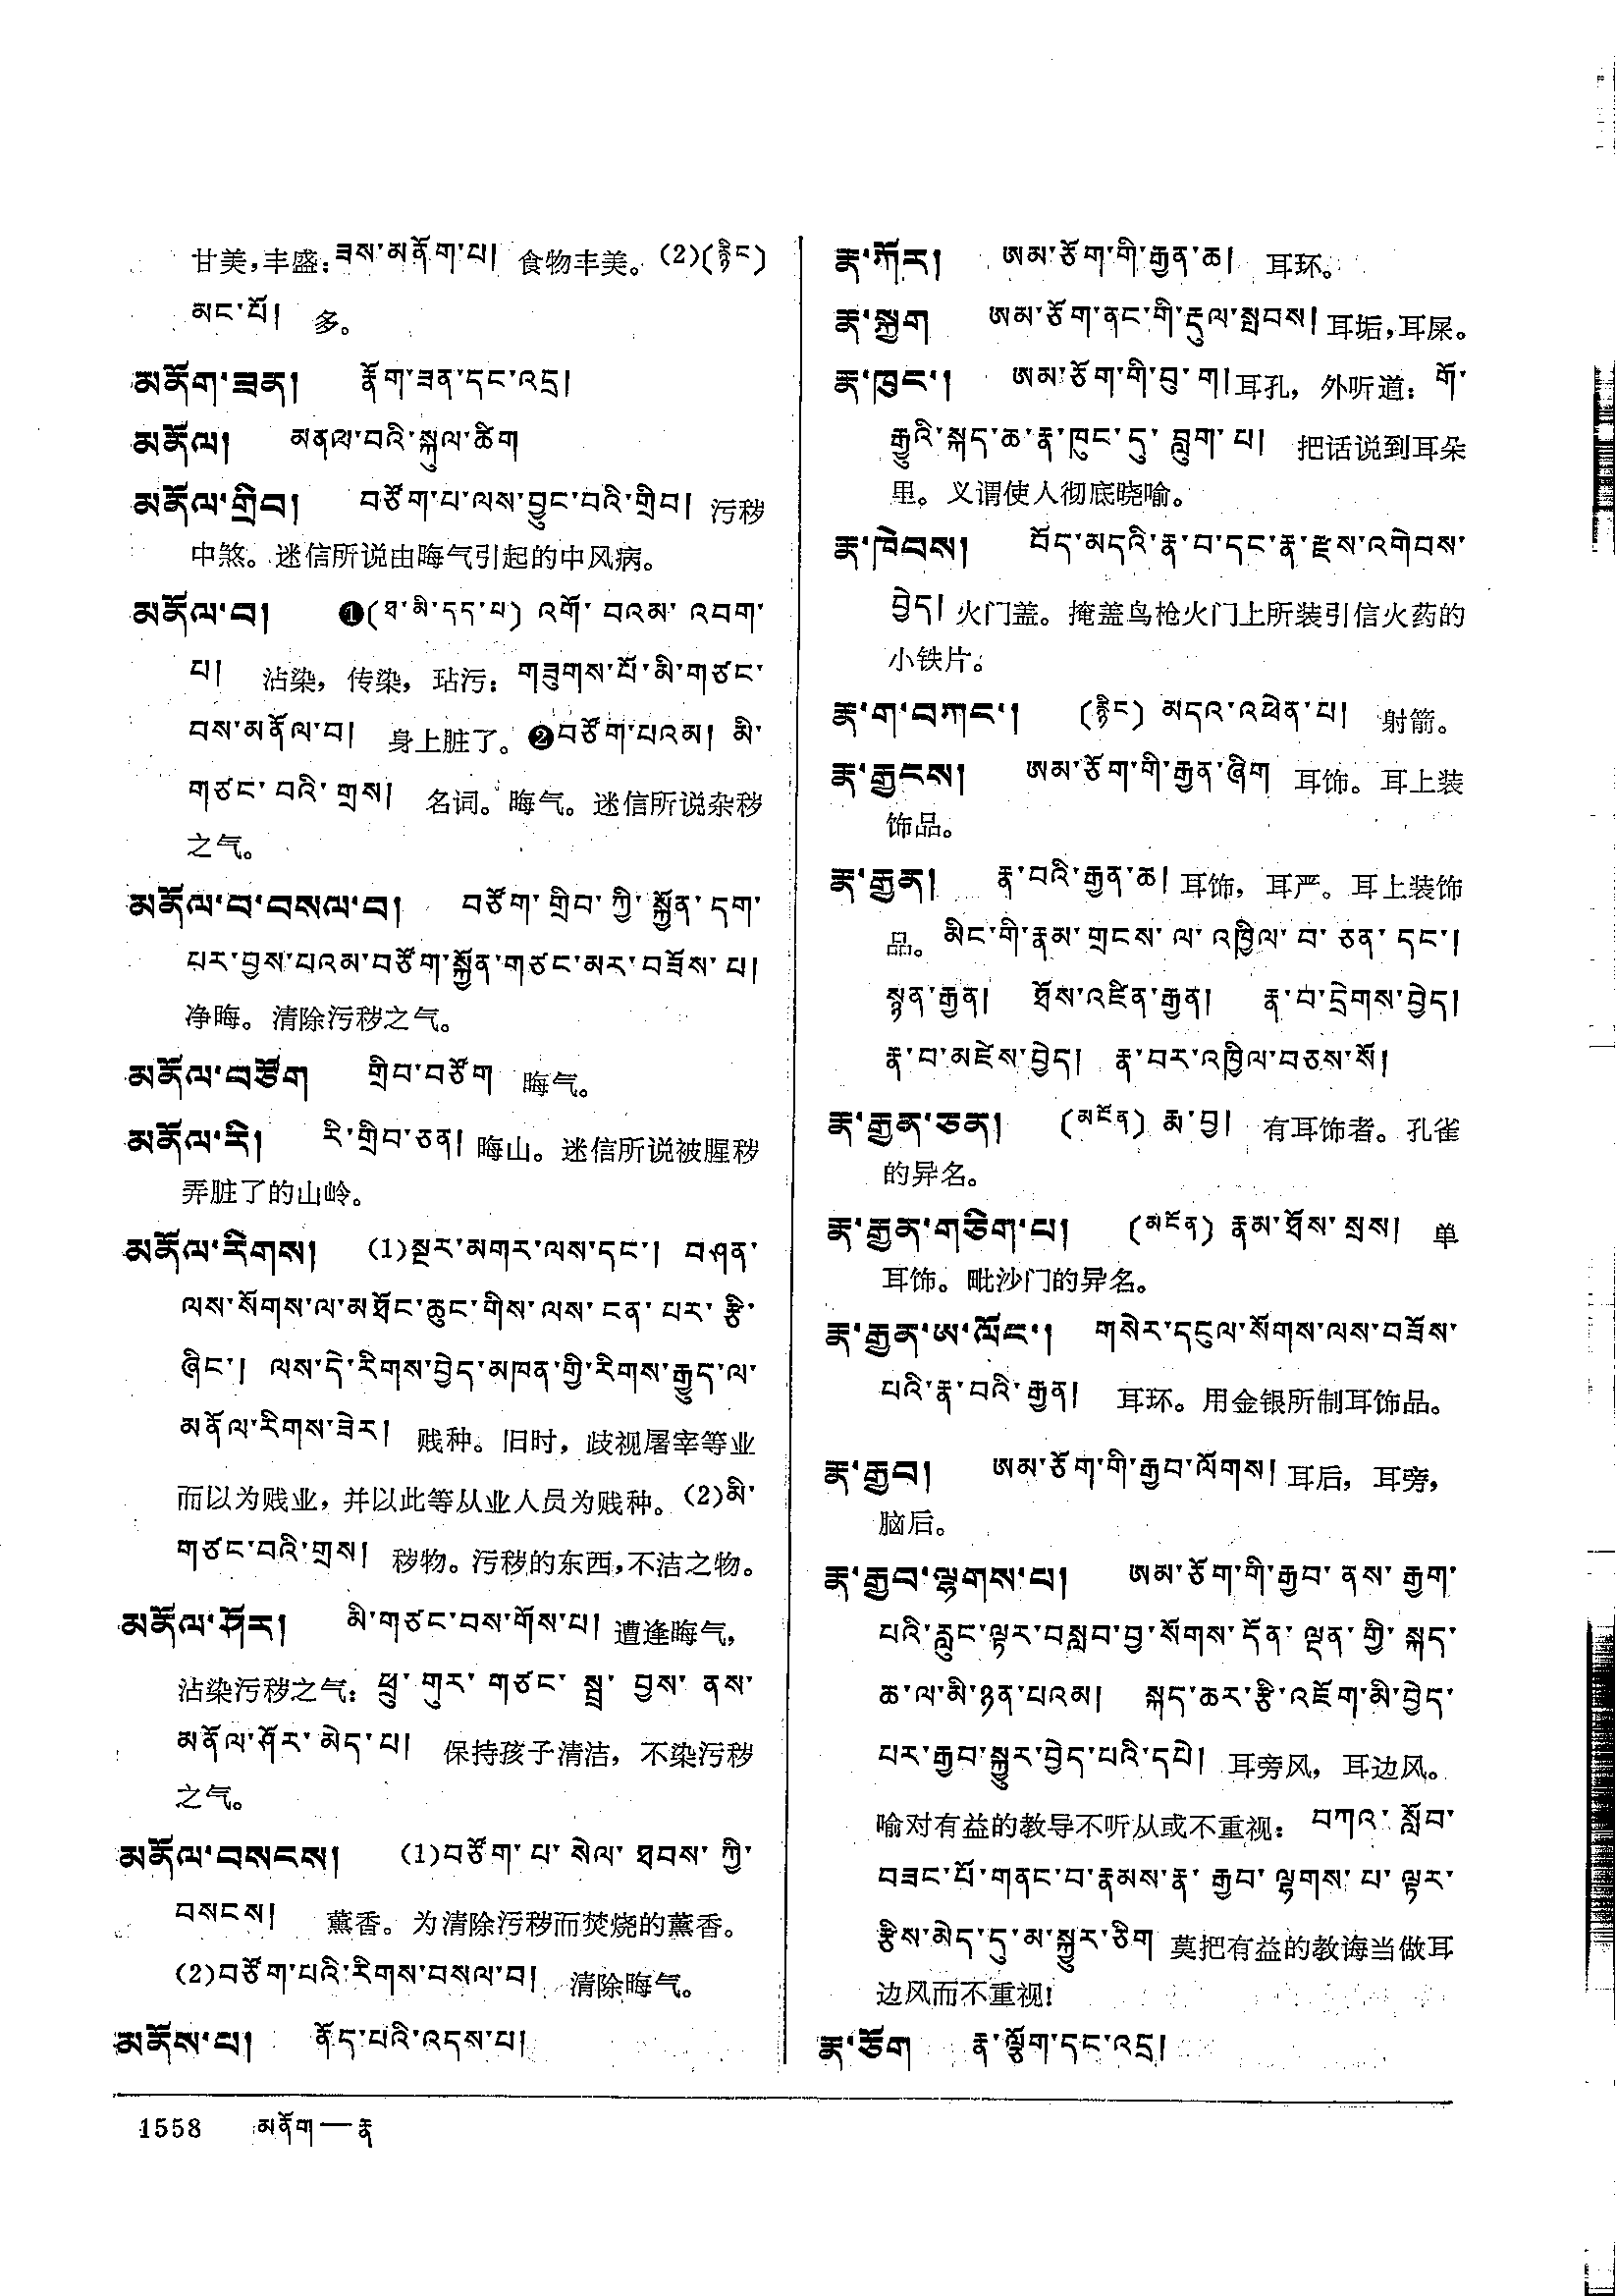 甘美,丰盛:ཟས་མནོག་པ། 食物丰美。(2)(རྙིང)
མང་པོ། 多。
མནོག་ཟན། རྣོག་ཟན་དང་འདྲ།
མནོལ། མནལ་བའི་སྐུལ་ཚིག
མནོལ་གྲིབ། བཙོག་པ་ལས་བྱུང་བའི་གྲིབ། 污秽
中煞。迷信所说由晦气引起的中风病。
མནོལ་བ། ❶(ཐ་མི་དད་པ) འགོ་བའམ་འབག་
པ། 沾染，传染，玷污：གཟུགས་པོ་མི་གཙང་
བས་མནོལ་བ། 身上脏了。❷བཙོག་པའམ། མི་
གཙང་བའི་གྲས། 名词。晦气。迷信所说杂秽
之气。
མནོལ་བ་བསལ་བ། བཙོག་གྲིབ་ཀྱི་སྐྱོན་དག་
པར་བྱས་པའམ་བཙོག་སྐྱོན་གཙང་མར་བཟོས་པ།
净晦。清除污秽之气。
མནོལ་བཙོག གྲིབ་བཙོག 晦气。
མནོལ་རི། རི་གྲིབ་ཅན། 晦山。迷信所说被腥秽
弄脏了的山岭。
མནོལ་རིགས། (1)སྔར་མགར་ལས་དང་། བཤན་
ལས་སོགས་ལ་མཐོང་ཆུང་གིས་ལས་ངན་པར་རྩི་
ཞིང་། ལས་དེ་རིགས་བྱེད་མཁན་གྱི་རིགས་རྒྱུད་ལ་
མནོལ་རིགས་ཟེར། 贱种。旧时，歧视屠宰等业
而以为贱业，并以此等从业人员为贱种。(2)མི་
གཙང་བའི་གྲས། 秽物。污秽的东西,不洁之物。
མནོལ་ཤོར། མི་གཙང་བས་གོས་པ། 遭逢晦气，
沾染污秽之气：ཕྲུ་གུར་གཙང་སྦྲ་བྱས་ནས་
མནོལ་ཤོར་མེད་པ། 保持孩子清洁，不染污秽
之气。
མནོལ་བསངས། (1)བཙོག་པ་སེལ་ཐབས་ཀྱི་
བསངས། 薰香。为清除污秽而焚烧的薰香。
(2)བཙོག་པའི་རིགས་བསལ་བ། 清除晦气。
མནོས་པ། ནོད་པའི་འདས་པ།
རྣ་ཀོར། ཨམ་ཅོག་གི་རྒྱན་ཆ། 耳环。
རྣ་སྐྱག ཨམ་ཅོག་ནང་གི་རྡུལ་སྤབས། 耳垢,耳屎。
རྣ་ཁུང་། ཨམ་ཅོག་གི་བུ་ག། 耳孔，外听道：གོ་
རྒྱུའི་སྐད་ཆ་རྣ་ཁུང་དུ་བླུག་པ། 把话说到耳朵
里。义谓使人彻底晓喻。
རྣ་ཁེབས། བོད་མདའི་རྣ་བ་དང་རྣ་རྫས་འགེབས་
བྱེད། 火门盖。掩盖鸟枪火门上所装引信火药的
小铁片。
རྣ་ག་བཀང་། (རྙིང) མདའ་འཕེན་པ། 射箭。
རྣ་རྒྱངས། ཨམ་ཅོག་གི་རྒྱན་ཞིག 耳饰。耳上装
饰品。
རྣ་རྒྱན། རྣ་བའི་རྒྱན་ཆ། 耳饰，耳严。耳上装饰
品。མིང་གི་རྣམ་གྲངས་ལ་འཁྱིལ་བ་ཅན་དང་།
སྙན་རྒྱན། ཐོས་འཛིན་རྒྱན། རྣ་བ་དྲེགས་བྱེད།
རྣ་བ་མཛེས་བྱེད། རྣ་བར་འཁྱིལ་བཅས་སོ།
རྣ་རྒྱན་ཅན། (མངོན) རྨ་བྱ། 有耳饰者。孔雀
的异名。
རྣ་རྒྱན་གཅིག་པ། (མངོན) རྣམ་ཐོས་སྲས། 单
耳饰。毗沙门的异名。
རྣ་རྒྱན་ཨ་ལོང་། གསེར་དངུལ་སོགས་ལས་བཟོས་
པའི་རྣ་བའི་རྒྱན། 耳环。用金银所制耳饰品。
རྣ་རྒྱབ། ཨམ་ཅོག་གི་རྒྱབ་ལོགས། 耳后，耳旁，
脑后。
རྣ་རྒྱབ་ལྷགས་པ། ཨམ་ཅོག་གི་རྒྱབ་ནས་རྒྱག་
པའི་རླུང་ལྟར་བསླབ་བྱ་སོགས་དོན་ལྡན་གྱི་སྐད་
ཆ་ལ་མི་ཉན་པའམ། སྐད་ཆར་རྩི་འཇོག་མི་བྱེད་
པར་རྒྱབ་སྐྱུར་བྱེད་པའི་དཔེ། 耳旁风，耳边风。
喻对有益的教导不听从或不重视：བཀའ་སློབ་
བཟང་པོ་གནང་བ་རྣམས་རྣ་རྒྱབ་ལྷགས་པ་ལྟར་
རྩིས་མེད་དུ་མ་སྐྱུར་ཅིག 莫把有益的教诲当做耳
边风而不重视!
རྣ་ཅོག རྣ་ལྕོག་དང་འདྲ།
1558 མནོག—རྣ